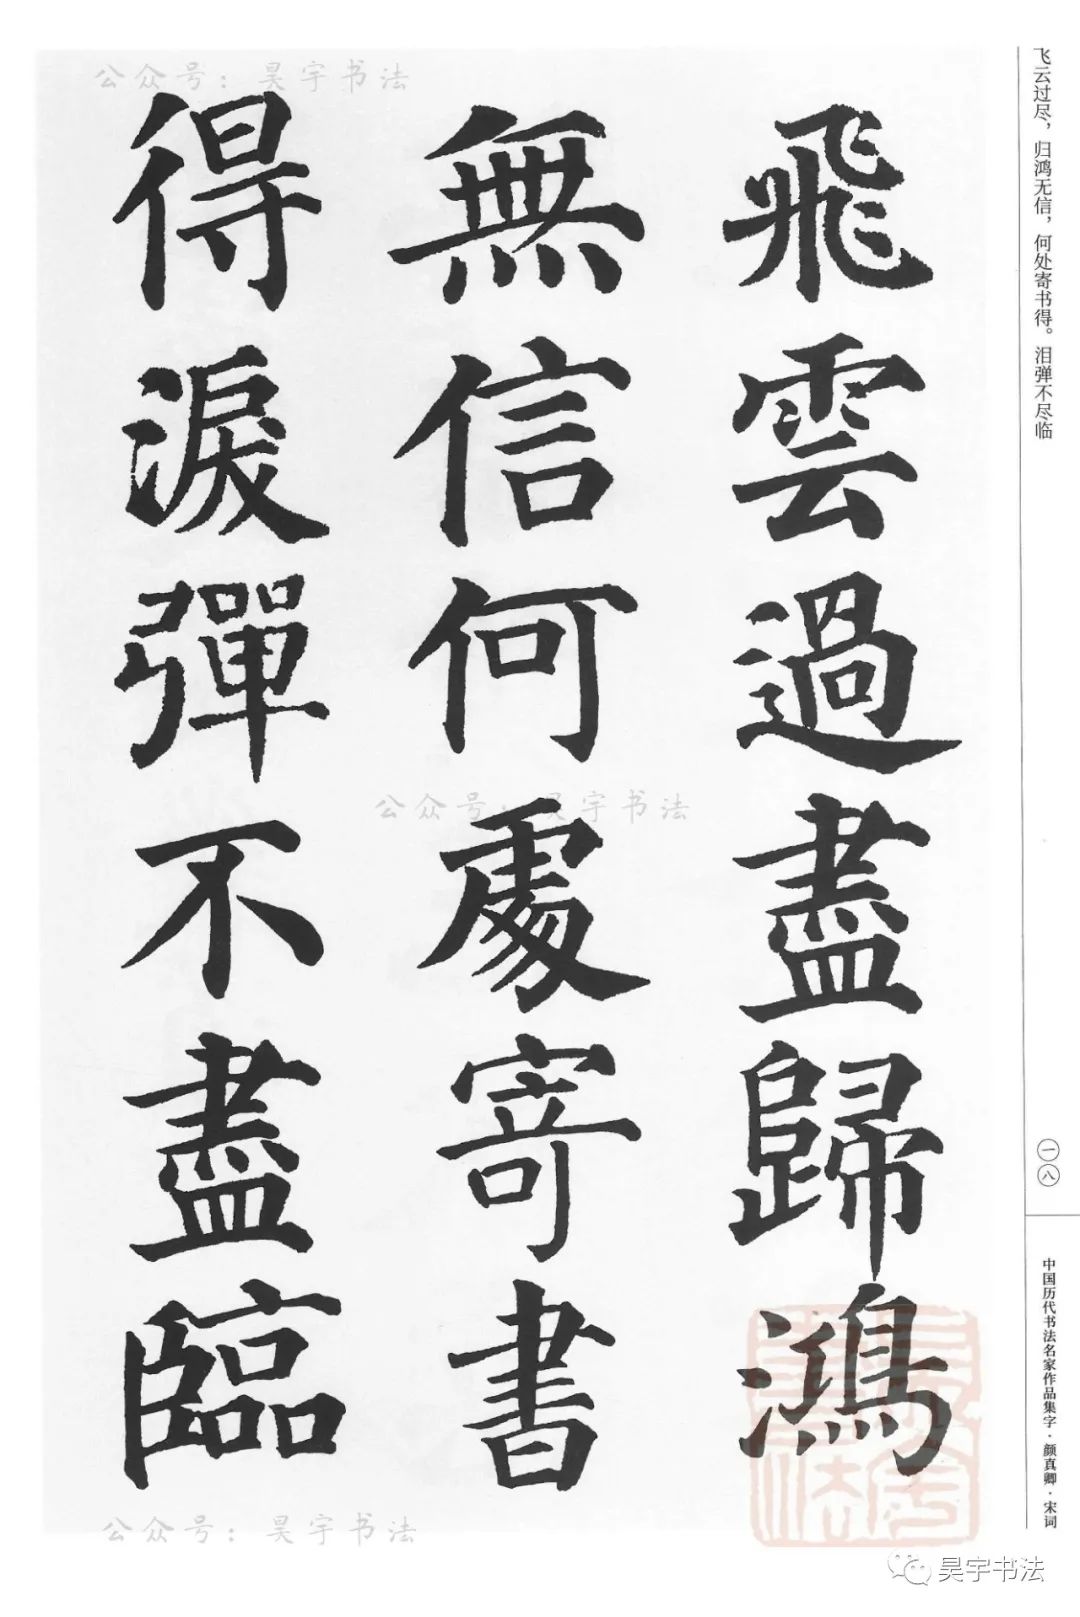 飞云过尽，归鸿无信，何处寄书得。泪弹不尽临
飛雲過盡歸鴻
無信何處寄書
得淚彈不盡臨
一八
中国历代书法名家作品集字·颜真卿·宋词
公众号：昊宇书法
公众号：昊宇书法
公众号：昊宇书法
昊宇书法